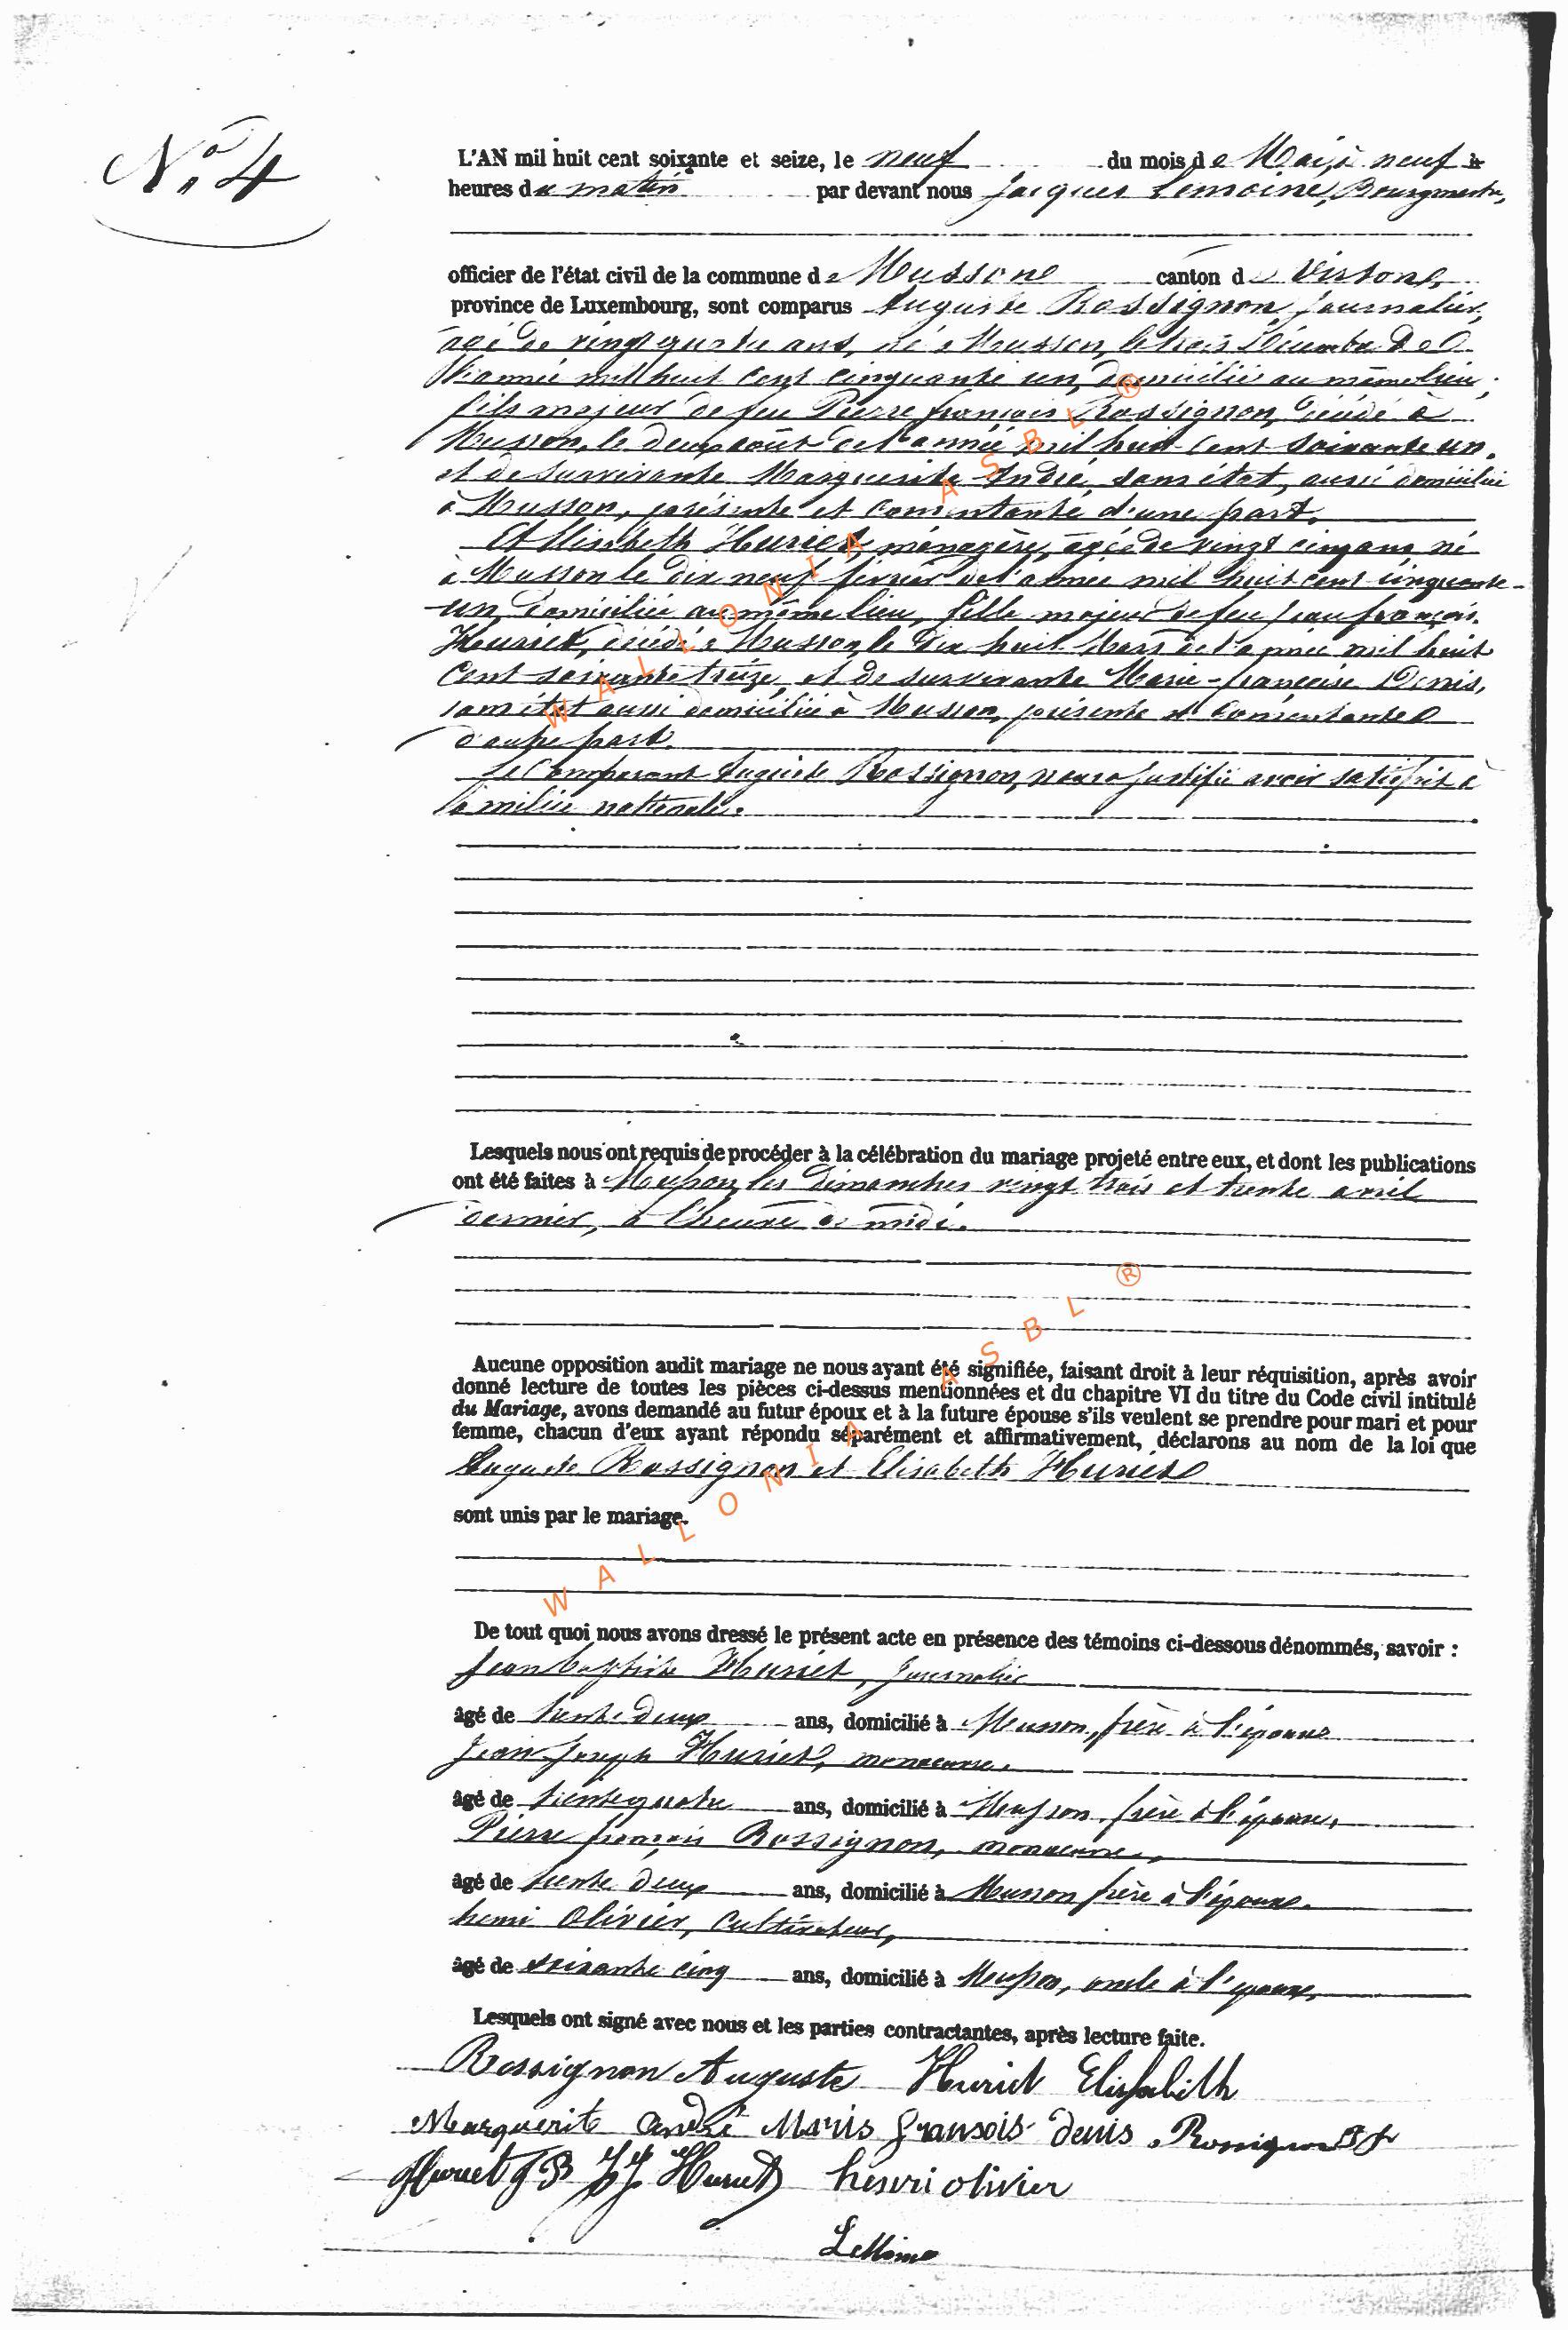 No 4
L'AN mil huit cent soixante et seize, le neuf du mois de Mai, à neuf
heures du matin par devant nous Jacques Lemoine, Bourgmestre,
officier de l'état civil de la commune de Musson canton de Virton,
province de Luxembourg, sont comparus Auguste Rossignon, journalier,
âgé de vingt quatre ans, né à Musson, le trois Décembre de
l'année mil huit cent cinquante un, domicilié au même lieu,
fils majeur de feu Pierre françois Rossignon, décédé à
Musson, le deux août de l'année mil huit cent soixante un.
et de survivante Marguerite André, sans état, aussi domiciliée
à Musson, présente et consentante d'une part.
Et Elisabeth Huriet, ménagère, âgée de vingt cinq ans, né
à Musson le dix neuf février de l'année mil huit cent cinquante-
un, domiciliée au même lieu, fille majeur de feu jean françois
Houriet, décédé à Musson, le dix huit Mars de l'année mil huit
cent soixante treize, et de survivante Marie-françoise Denis,
sans état aussi domiciliée à Musson, présente et consentante
d'autre part.
Le Comparant Auguste Rossignon, nous a justifié avoir satisfait à
la milice nationale.
Lesquels nous ont requis de procéder à la célébration du mariage projeté entre eux, et dont les publications
ont été faites à Musson, les dimanches vingt trois et trente avril
dernier, à l'heure de midi.
Aucune opposition audit mariage ne nous ayant été signifiée, faisant droit à leur réquisition, après avoir
donné lecture de toutes les pièces ci-dessus mentionnées et du chapitre VI du titre du Code civil intitulé
du Mariage, avons demandé au futur époux et à la future épouse s'ils veulent se prendre pour mari et pour
femme, chacun d'eux ayant répondu séparément et affirmativement, déclarons au nom de la loi que
Auguste Rossignon et Elisabeth Huriet
sont unis par le mariage.
De tout quoi nous avons dressé le présent acte en présence des témoins ci-dessous dénommés, savoir :
Jean baptiste Huriet, journalier
âgé de trente deux ans, domicilié à Musson, frère à l'épouse
Jean Joseph Huriet, manœuvre.
âgé de trente quatre ans, domicilié à Musson, frère à l'épouse,
Pierre françois Rossignon, manœuvre,
âgé de trente deux ans, domicilié à Musson frère à l'époux.
henri Olivier, Cultivateur,
âgé de soixante cinq ans, domicilié à Musson, oncle à l'époux,
Lesquels ont signé avec nous et les parties contractantes, après lecture faite.
Rossignon Auguste Huriet Elisabeth
Marguerite andré Maris fransois denis Rossignon
Huriet JB JJ Huriet henri olivier
Lemoine
WALLONIA ASBL ®
WALLONIA ASBL ®